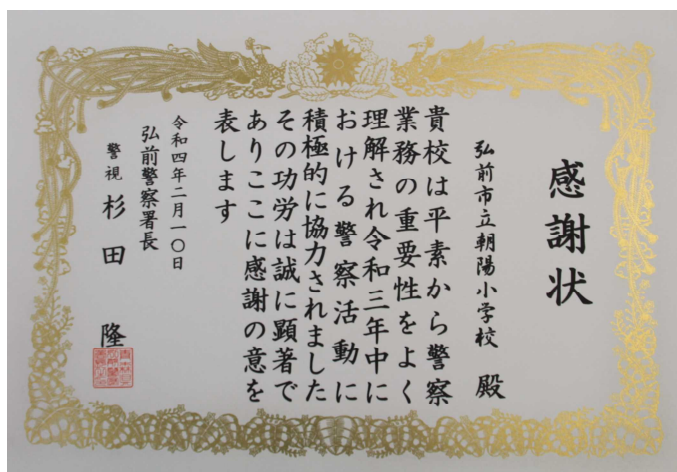 感謝状
弘前市立朝陽小学校 殿
貴校は平素から警察
業務の重要性をよく
理解され令和三年中に
おける警察活動に
積極的に協力されました
その功労は誠に顕著で
ありここに感謝の意を
表します
令和四年二月一〇日
弘前警察署長
警視 杉田 隆